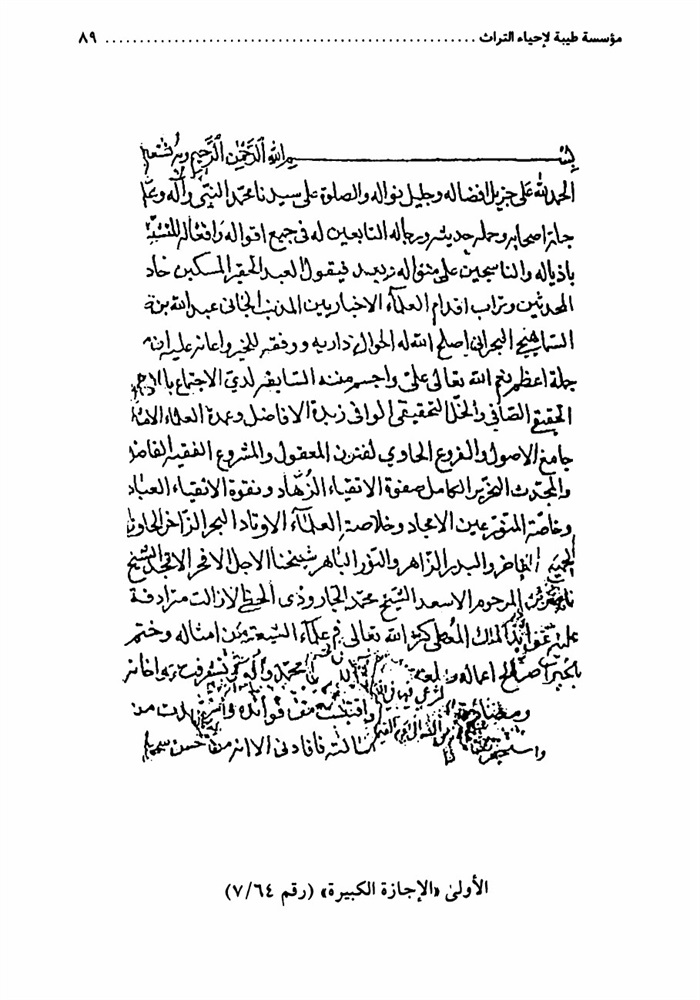 مؤسسة طيبة لإحياء التراث ........................................................ ٨٩
بسم الله الرحمن الرحيم وبه نستعين
الحمد لله على جزيل افضاله وجليل نواله والصلوة على سيدنا محمد النبي وآله وعلى
جلة اصحابه وحملة حديثه ورجاله التابعين له في جميع اقواله وافعاله
باذياله والناسجين على منواله وبعد فيقول العبد الحقير المسكين خادم
المحدثين وتراب اقدام العلماء الاخباريين المذنب الجاني عبد الله بن
السماهيجي البحراني اصلح الله له احوال داريه ووفقه للخير واعانه عليه ان من
جملة اعظم نعم الله تعالى علي واجسم مننه السابغة لدي الاجتماع بالاخ
الحقيقي الصافي والخل التحقيقي الوافي زبدة الافاضل وعمدة العلماء
جامع الاصول والفروع الحاوي لفنون المعقول والمشروع الفقيه الفاضل
والمحدث النحرير الكامل صفوة الاتقياء الزهاد ونقوة الانقياء العباد
وخاصة المتورعين الامجاد وخلاصة العلماء الاوتاد البحر الزاخر الحاوي
والبدر الزاهر والنور الباهر شيخنا الاجل الافخر الامجد الشيخ
المرحوم الاسعد الشيخ محمد الجارودي الخطي لا زالت مترادفة
عليه الملك المعطي كثر الله تعالى في علماء الشيعة من امثاله وختم
اعماله بمحمد وآله تشرفت
واقتبست من فوائده من
فافادني الا انه
الأولى «الإجازة الكبيرة» (رقم ٧/٦٤)